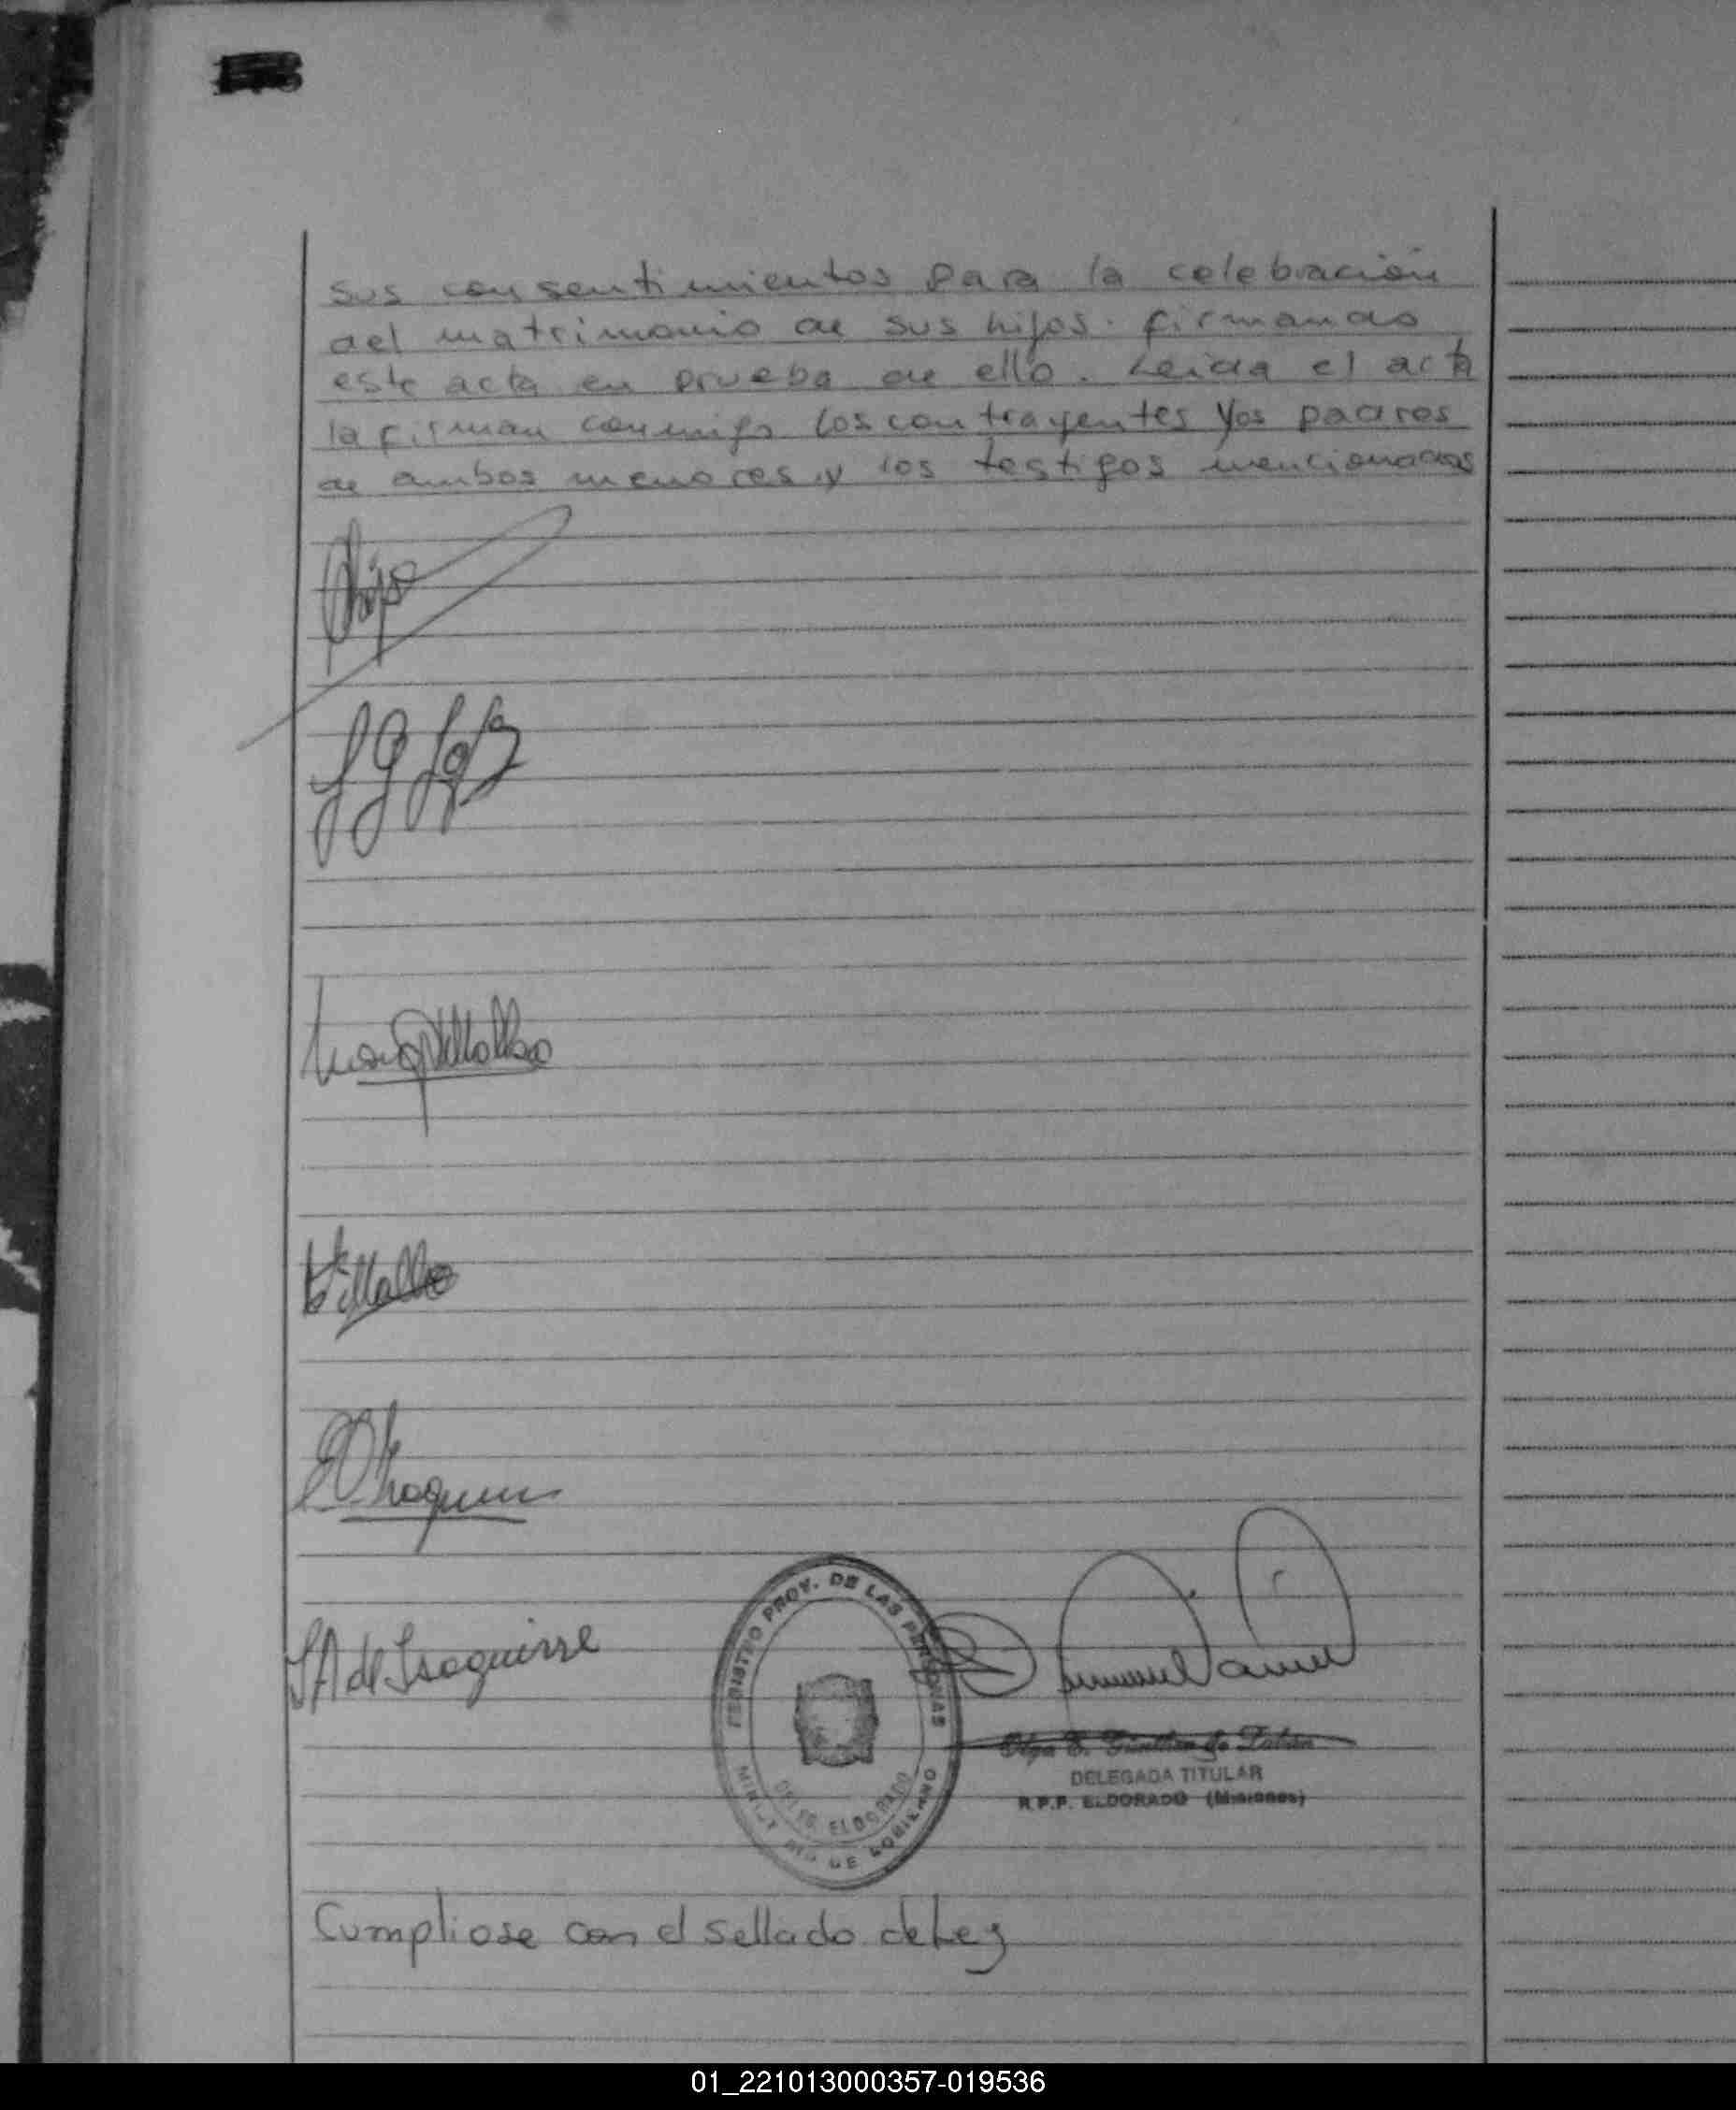 sus consentimientos para la celebración
del matrimonio de sus hijos. firmando
este acta en prueba de ello. Leida el acta
la firman conmigo los contrayentes y los padres
de ambos menores y los testigos mencionados
Villalba
SA de Isaguirre
REGISTRO PROV. DE LAS PERSONAS
MINISTERIO DE GOBIERNO
DELEG. ELDORADO
Olga E. Günther de
DELEGADA TITULAR
R.P.P. ELDORADO (Misiones)
Cumpliose con el sellado de Ley
01_221013000357-019536